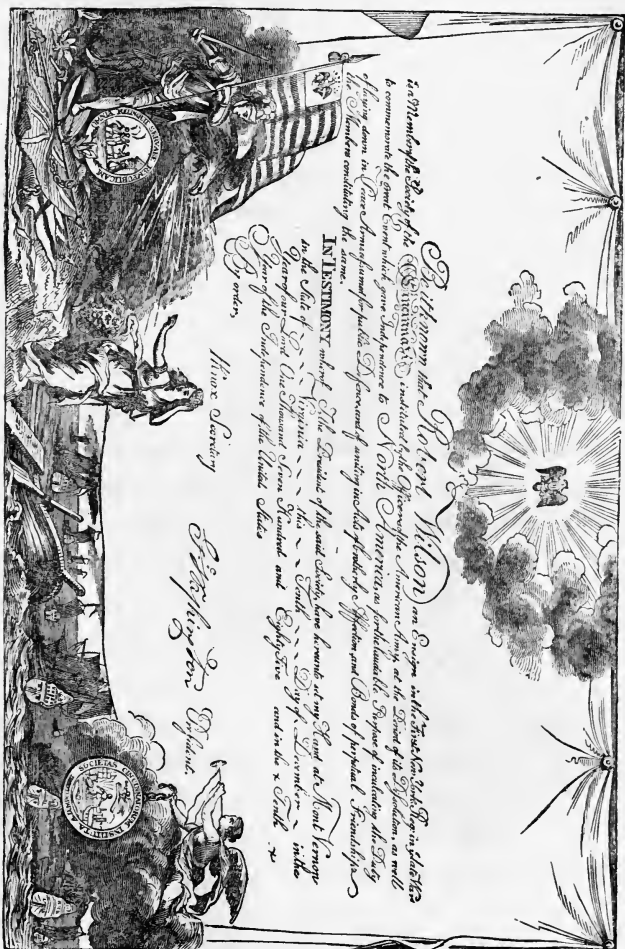 Be it known that Robert Wilson an Ensign in the First New York Reg. in late War
is a Member of the Society of the Cincinnati; instituted by the Officers of the American Army, at the Period of its Dissolution, as well
to commemorate the great Event which gave Independence to North America, as for the laudable Purpose of inculcating the Duty
of laying down in Peace Arms assumed for public Defence, and of uniting in Acts of brotherly Affection, and Bonds of perpetual Friendship,
the Members constituting the same.
IN TESTIMONY whereof I, the President of the said Society, have hereunto set my Hand at Mont Vernon
in the State of Virginia this Tenth Day of December in the
Year of our Lord One Thousand Seven Hundred and Eighty-Five and in the Tenth
Year of the Independence of the United States
By order,
HKnox Secretary
GWashington President.
OMNIA RELINQUIT SERVARE REMPUBLICAM
SOCIETAS